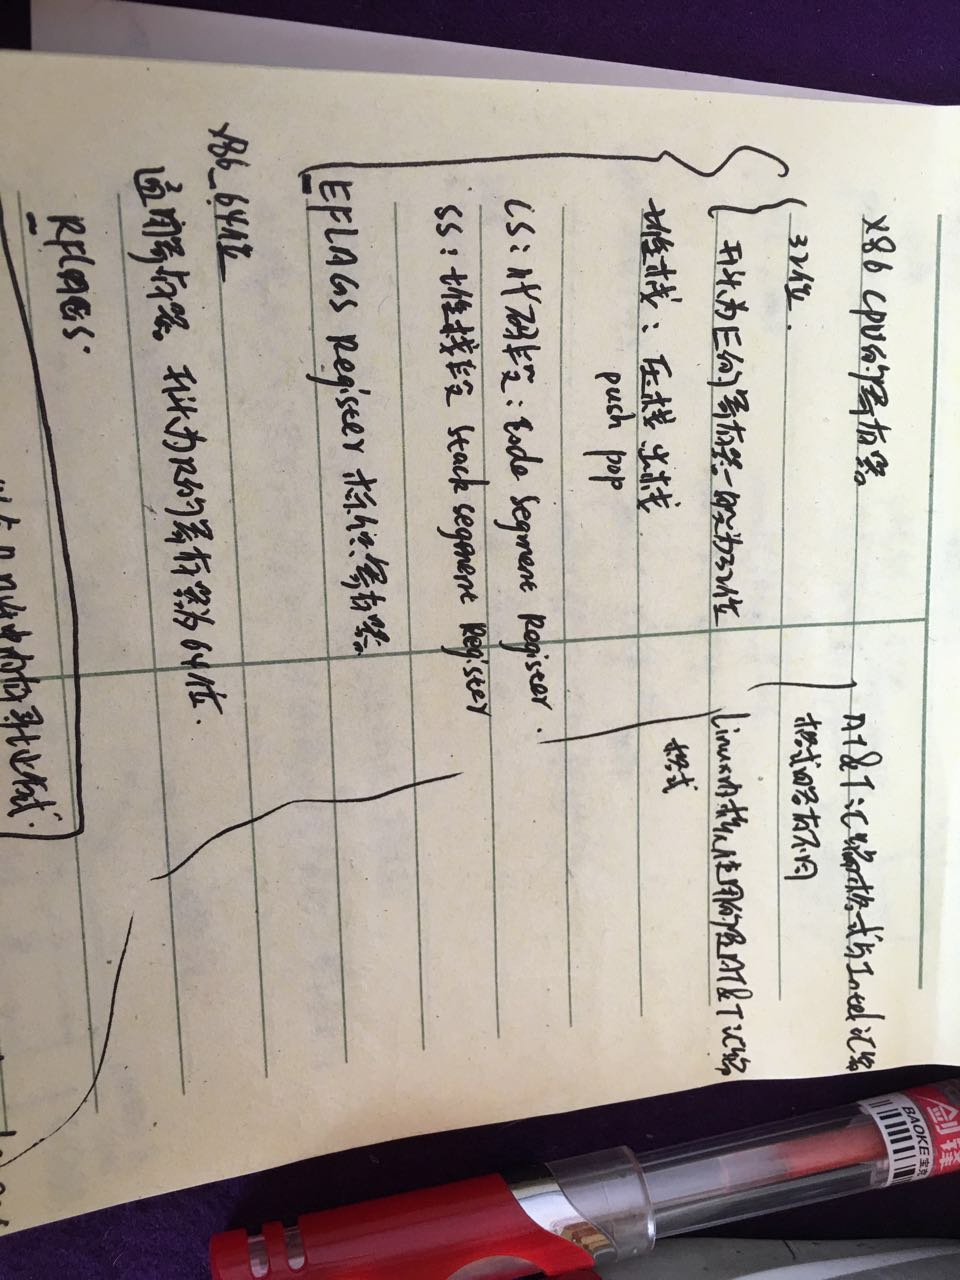 x86 CPU的寄存器
32位.
开头为E的寄存器一般为32位
堆栈: 压栈 出栈
push pop
CS: 代码段: Code Segment Register.
SS: 堆栈段 Stack Segment Register
EFLAGS Register 标识寄存器
x86_64位
通用寄存器. 开头为R的寄存器为64位.
RFLAGS.
AT&T汇编格式与Intel汇编
格式略有不同
Linux内核使用的是AT&T汇编
格式
BAOKE 宝克
剑锋